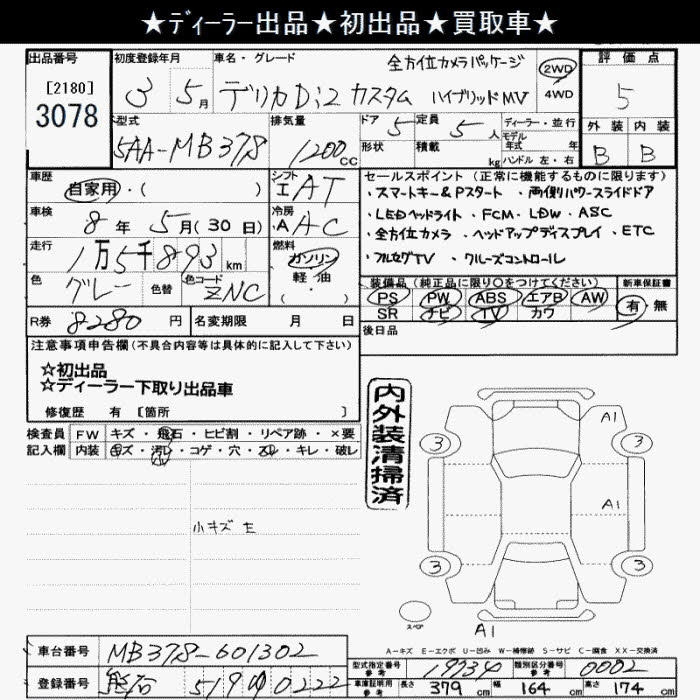 ★ディーラー出品★初出品★買取車★
出品番号
[2180]
3078
初度登録年月
3 5月
車名・グレード
全方位カメラパッケージ
デリカD:2 カスタム ハイブリッドMV
2WD
4WD
評価点
5
外装 内装
B B
型式
5AA-MB37S
排気量
1200cc
ドア 5
形状
定員 5人
積載 kg
ディーラー・並行
モデル
年式 年
ハンドル 左・右
車歴
自家用・( )
シフト
I AT
車検
8年 5月(30日)
冷房
A AC
走行
1万5千893km
燃料
ガソリン
軽・油
・
( )
色
グレー
色替
色コード
ZNC
R券 8280円
名変期限 月 日
セールスポイント (正常に機能するものに限ります)
・スマートキー&Pスタート ・両側パワースライドドア
・LEDヘッドライト ・FCM ・LDW ・ASC
・全方位カメラ ・ヘッドアップディスプレイ ・ETC
・フルセグTV ・クルーズコントロール
装備品 (純正品に限り○をつけてください)
PS PW ABS エアB AW
SR ナビ TV カワ
新車保証書
有・無
後日品
注意事項申告欄(不具合内容等は具体的に記入して下さい)
☆初出品
☆ディーラー下取り出品車
修復歴 有 [箇所 ]
検査員
記入欄
FW キズ・飛石・ヒビ割・リペア跡・×要
内装 キズ・汚レ・コゲ・穴・スレ・キレ・破レ
小キズ E
内外装清掃済
A1
3 3
A1
3 3
スペア
A1
A-キズ E-エクボ U-凹み W-補修跡 S-サビ C-腐食 XX-交換済
車台番号 MB37S-601302
登録番号 熊谷 519 の 0222
型式指定番号
参考
19934
類別区分番号
参考
0002
車庫証明用
参考
長さ 379cm 幅 164cm 高さ 174cm